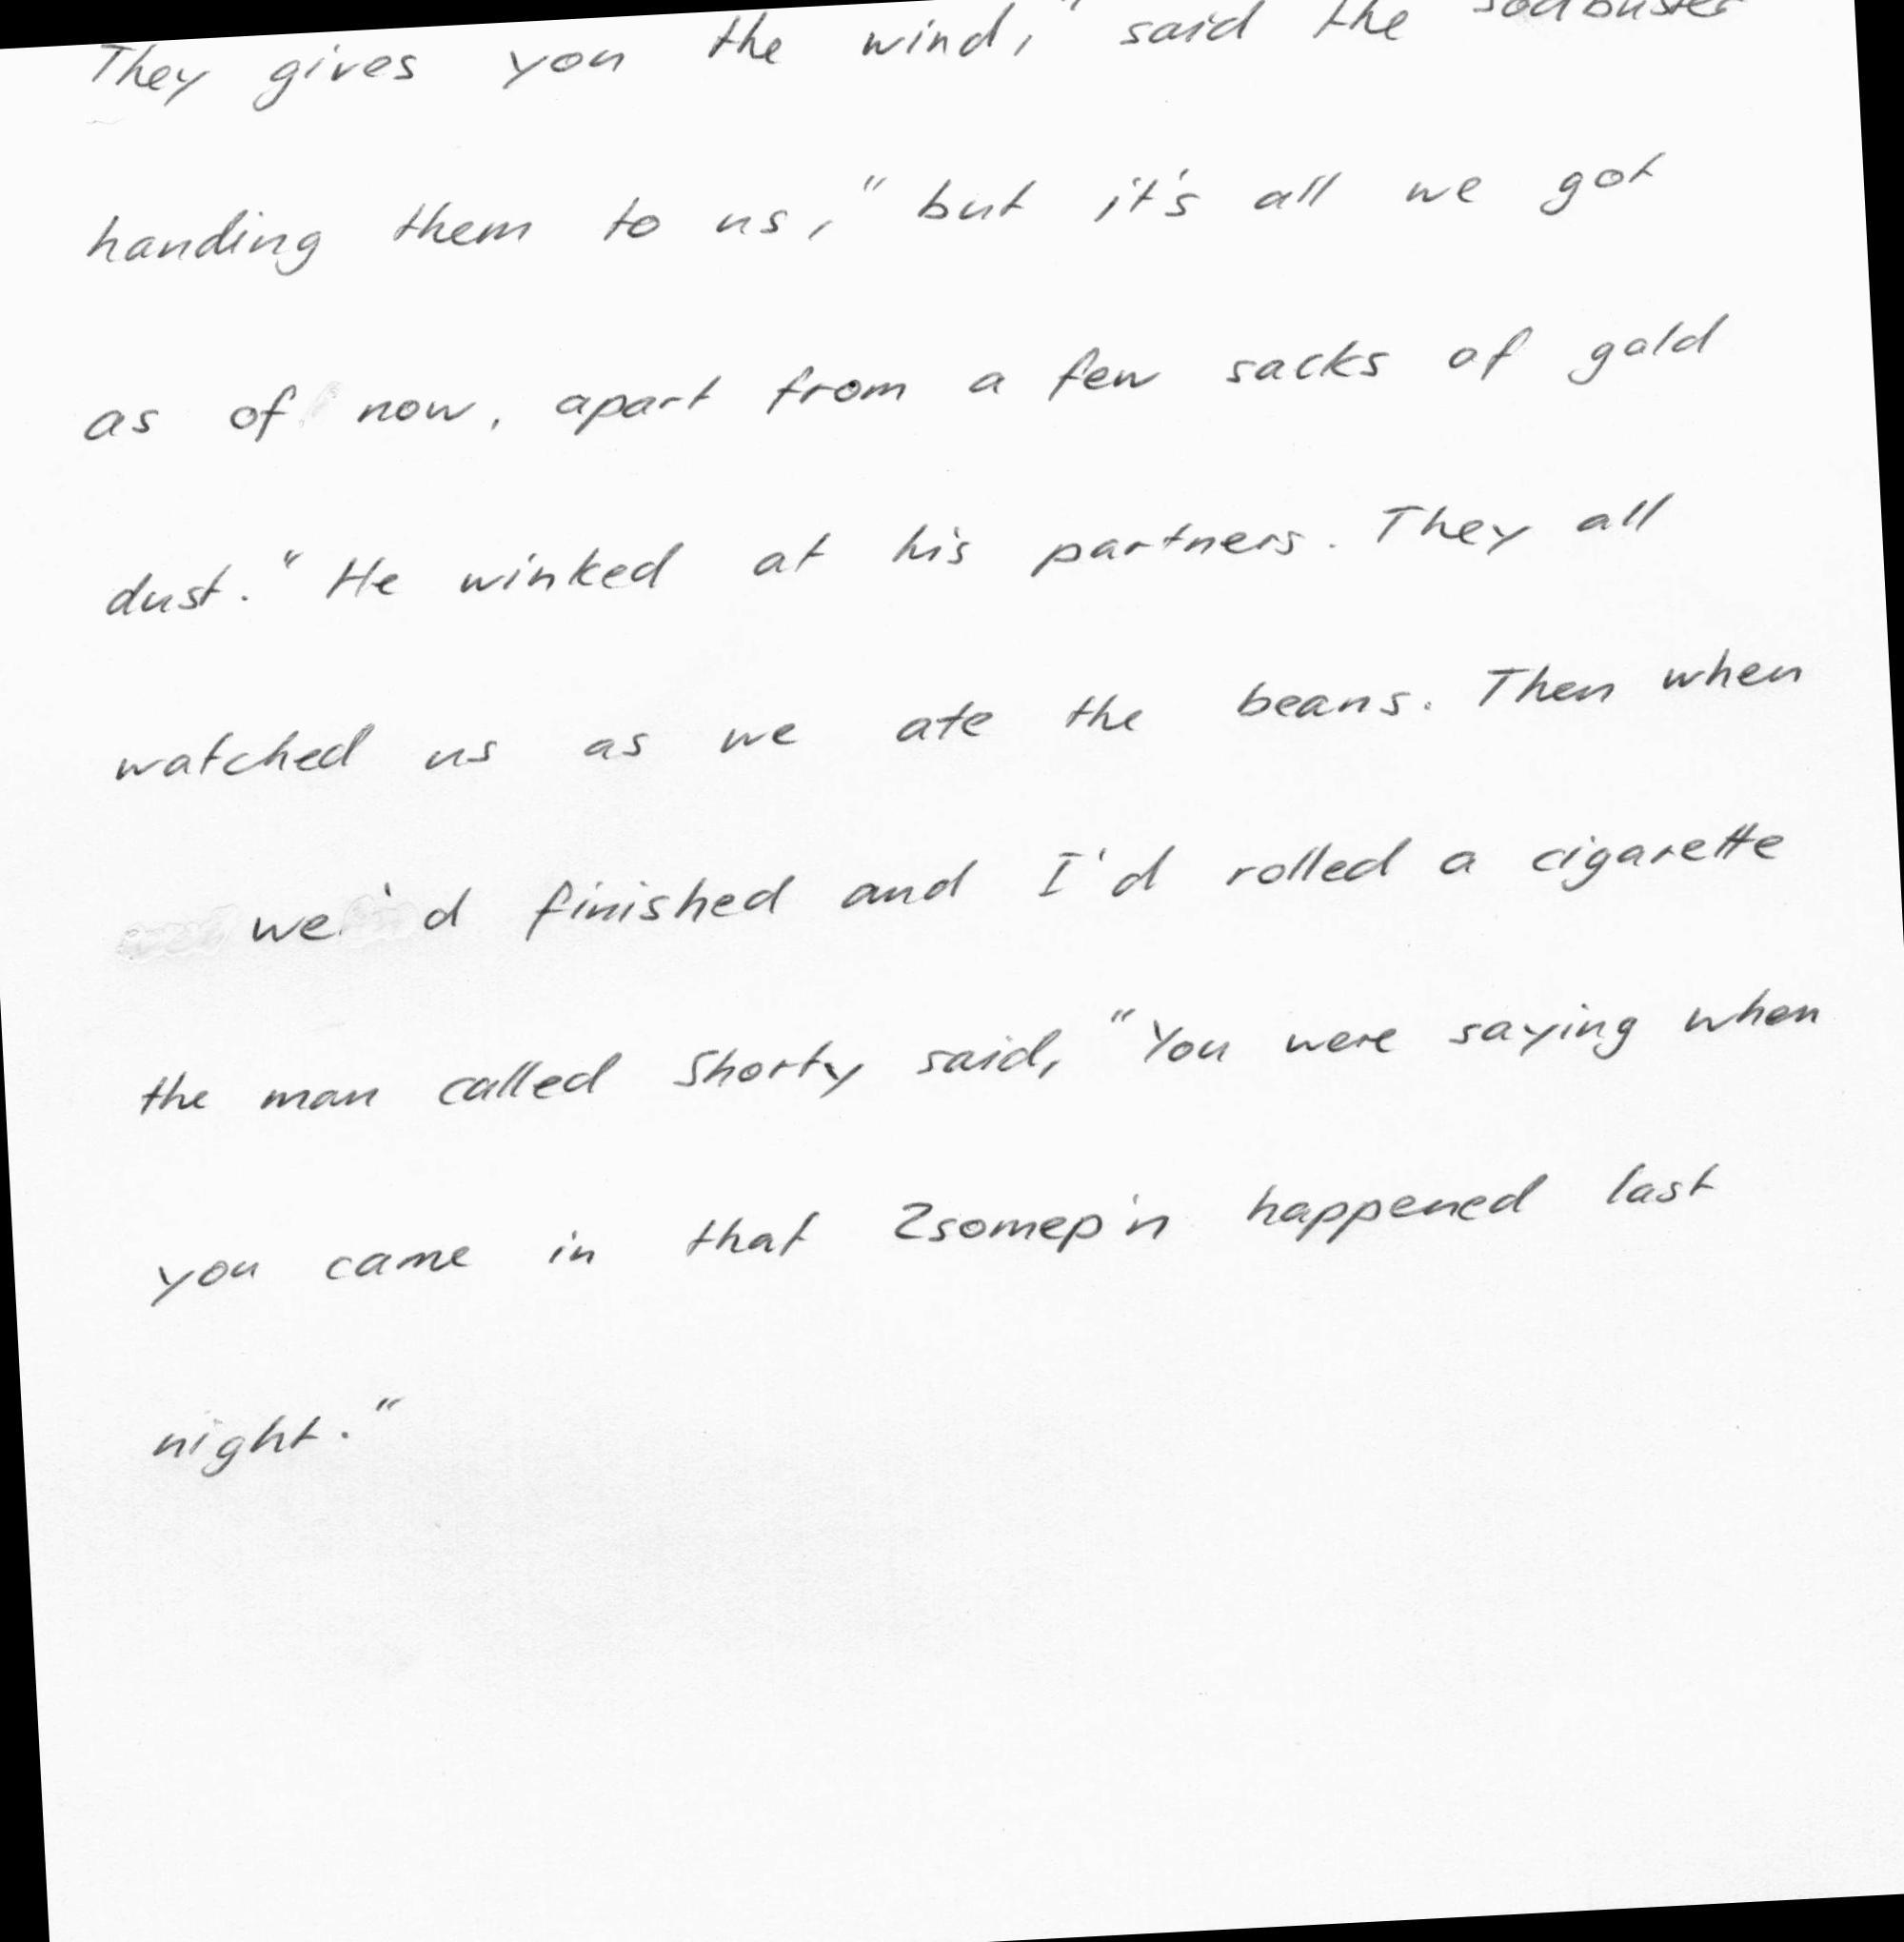 They gives you the wind," said the sodbuster
handing them to us," but it's all we got
as of now, apart from a few sacks of gold
dust." He winked at his partners. They all
watched us as we ate the beans. Then when
we'd finished and I'd rolled a cigarette
the man called Shorty said, "You were saying when
you came in that 2somep'n happened last
night."